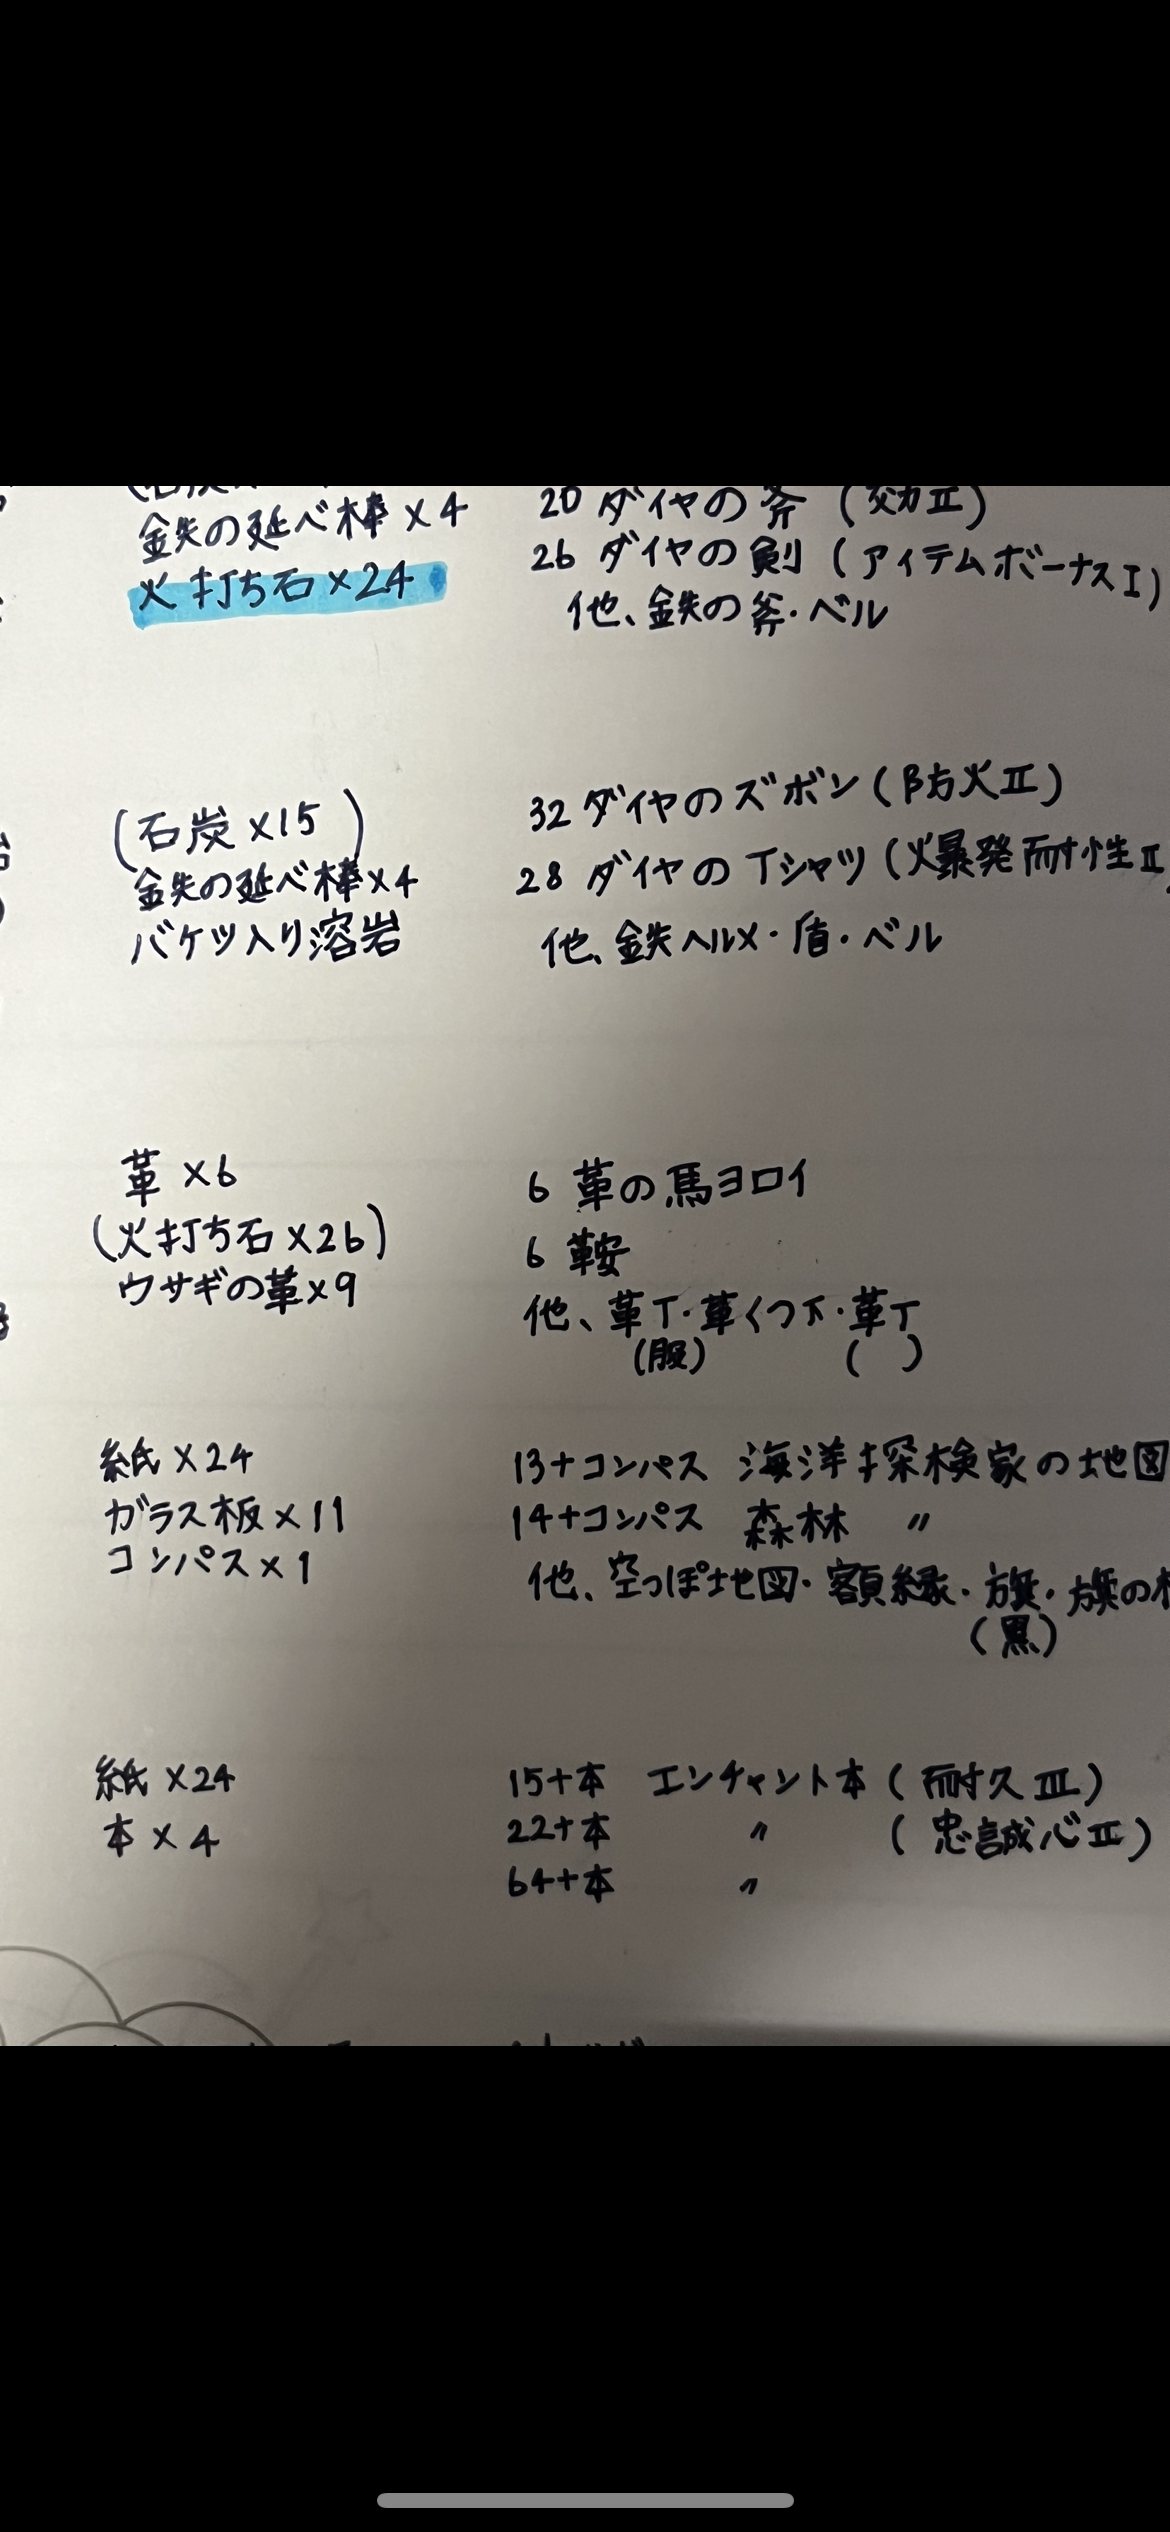 鉄の延べ棒×4
火打ち石×24
20 ダイヤの斧 (効力Ⅱ)
26 ダイヤの剣 (アイテムボーナスⅠ)
他、鉄の斧・ベル
(石炭×15)
鉄の延べ棒×4
バケツ入り溶岩
32 ダイヤのズボン (防火Ⅱ)
28 ダイヤのTシャツ (爆発耐性Ⅱ
他、鉄ヘルメ・盾・ベル
革×6
(火打ち石×26)
ウサギの革×9
6 革の馬ヨロイ
6 鞍
他、革T・革くつ下・革T
(服) ( )
紙×24
ガラス板×11
コンパス×1
13+コンパス 海洋探検家の地図
14+コンパス 森林 〃
他、空っぽ地図・額縁・旗・旗の
(黒)
紙×24
本×4
15+本 エンチャント本 (耐久Ⅲ)
22+本 〃 (忠誠心Ⅱ)
64+本 〃